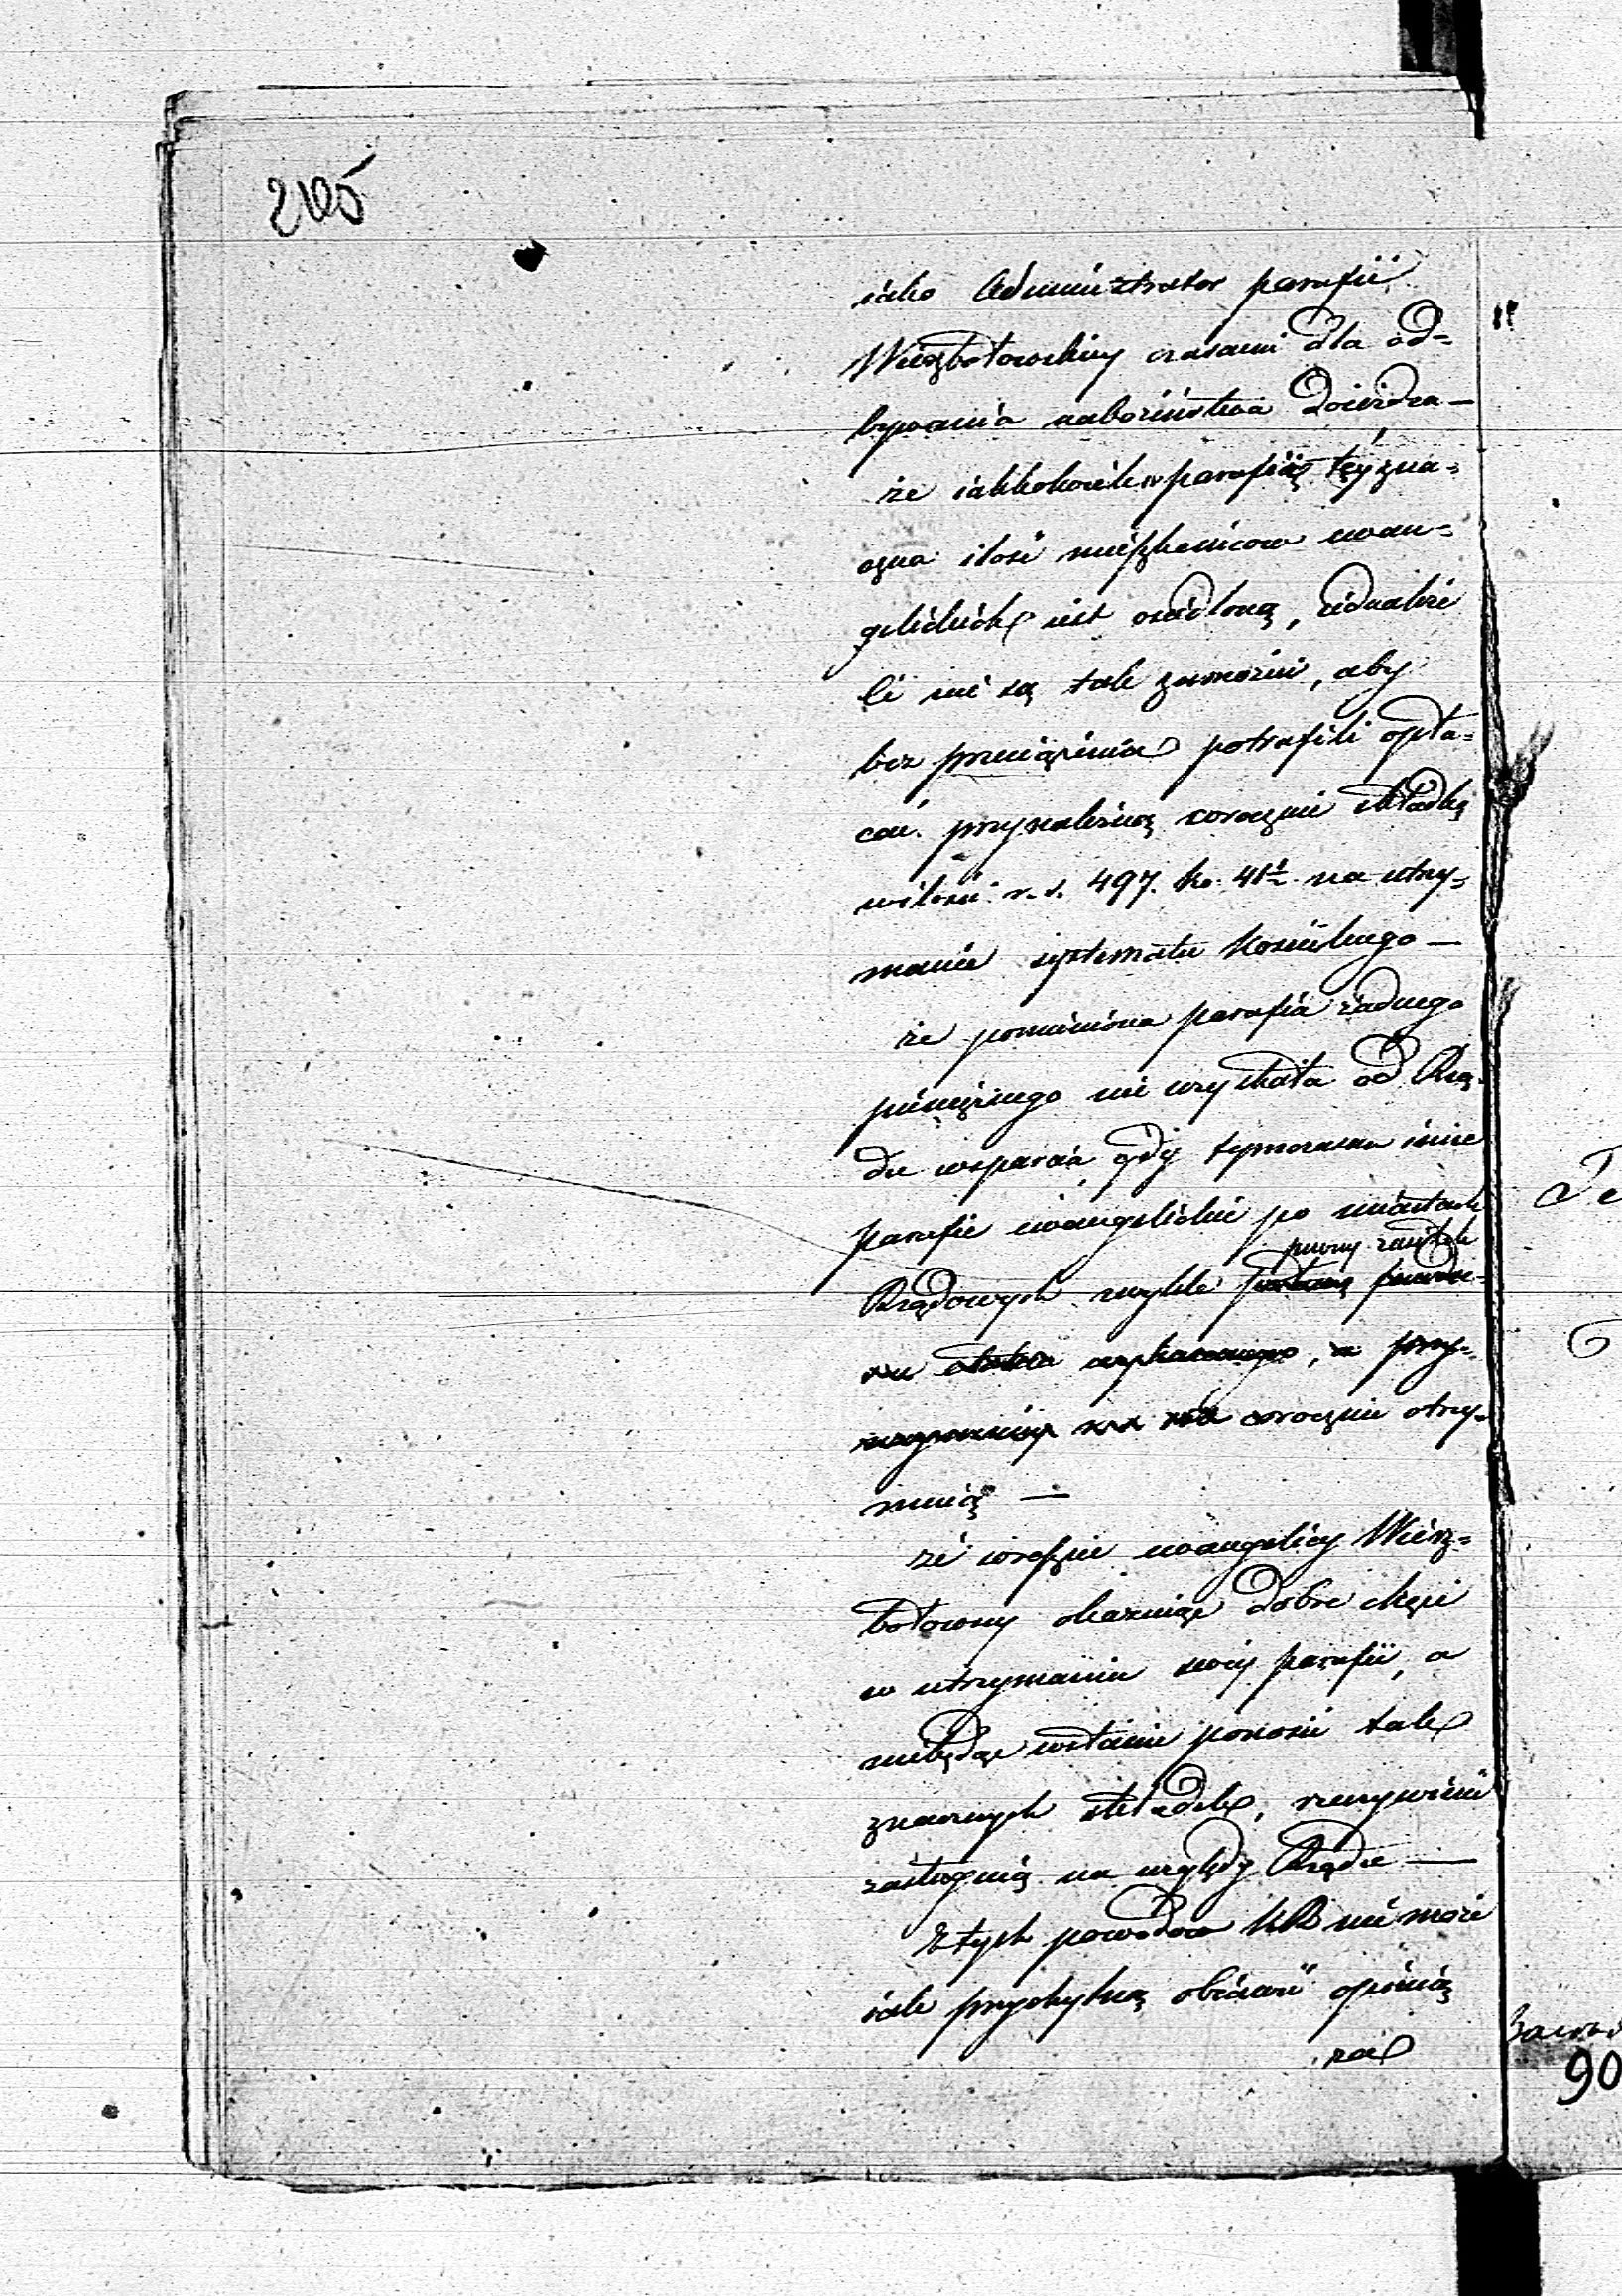 205
iako Administrator parafii
Wierzbołowskiey czasami dla od=
bywania nabożeństwa doieżdza —
że iakkolwiek w parafii tey zna=
czna ilość mieszkańcow ewan=
gelickich iest osiedloną, iednakże
ci nie są tak zamożni, aby
bez przeciążenia potrafili opła=
cać przynależną corocznie składkę
w ilości r. s. 497. ko. 41½ na utrzy=
manie systematu kościelnego —
że pomieniona parafia żadnego
pieniężnego nie uzyskała od Rzą=
du wsparcia, gdy tymczasem inne
parafie ewangelickie po miastach
pewny zasiłek
Rządowych zwykle
corocznie otrzy=
muią —
że wreszcie ewangelicy Wierz=
bołowscy okazuiąc dobre chęci
w utrzymaniu swey parafii, a
niebędąc wstanie ponosić tak
znacznych składek, rzeczywiście
zasługuią na względy Rządu —
Z tych powodow KR nie może
iak przychylną obiawić opinią
za
90